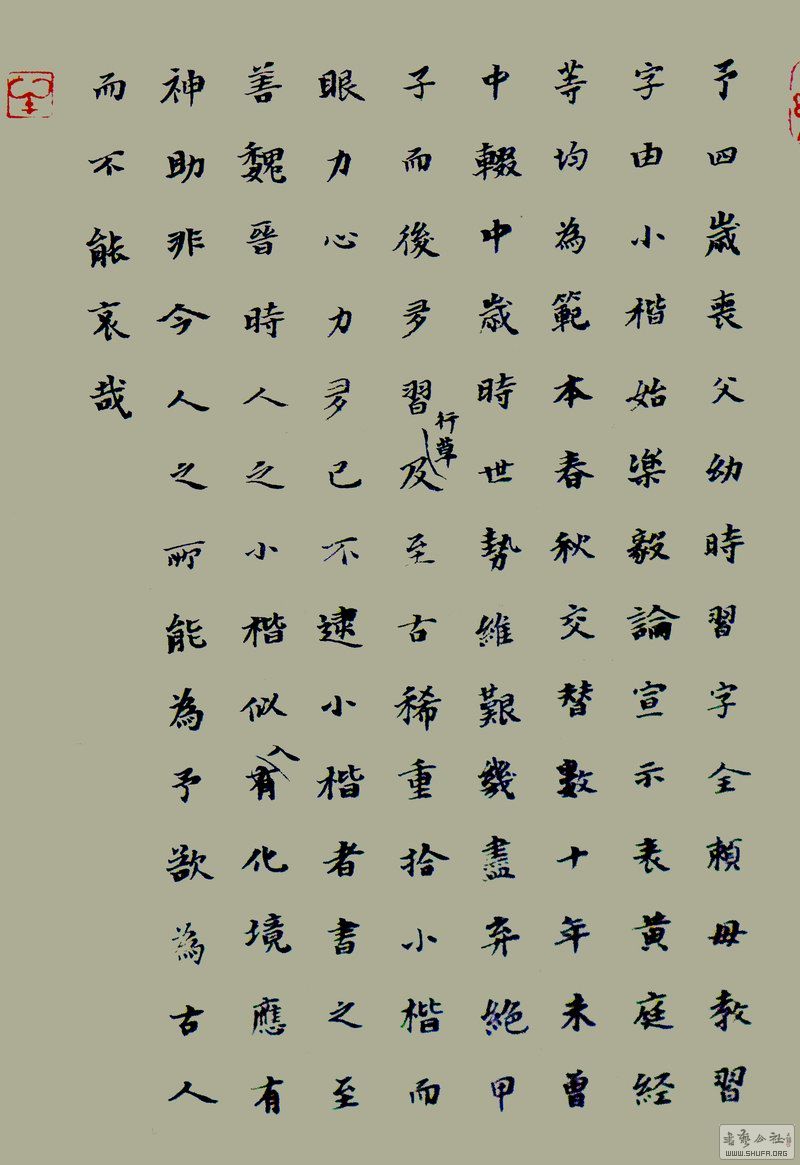 予四歲喪父幼時習字全賴毋教習
字由小楷始樂毅論宣示表黃庭経
等均為範本春秋交替數十年未曾
中輟中歲時世勢維艱幾盡弃絕甲
子而後多習行草及至古稀重拾小楷而
眼力心力多已不逮小楷者書之至
善魏晉時人之小楷似有入化境應有
神助非今人之所能為予欲為古人
而不能哀哉
書藝公社
WWW.SHUFA.ORG